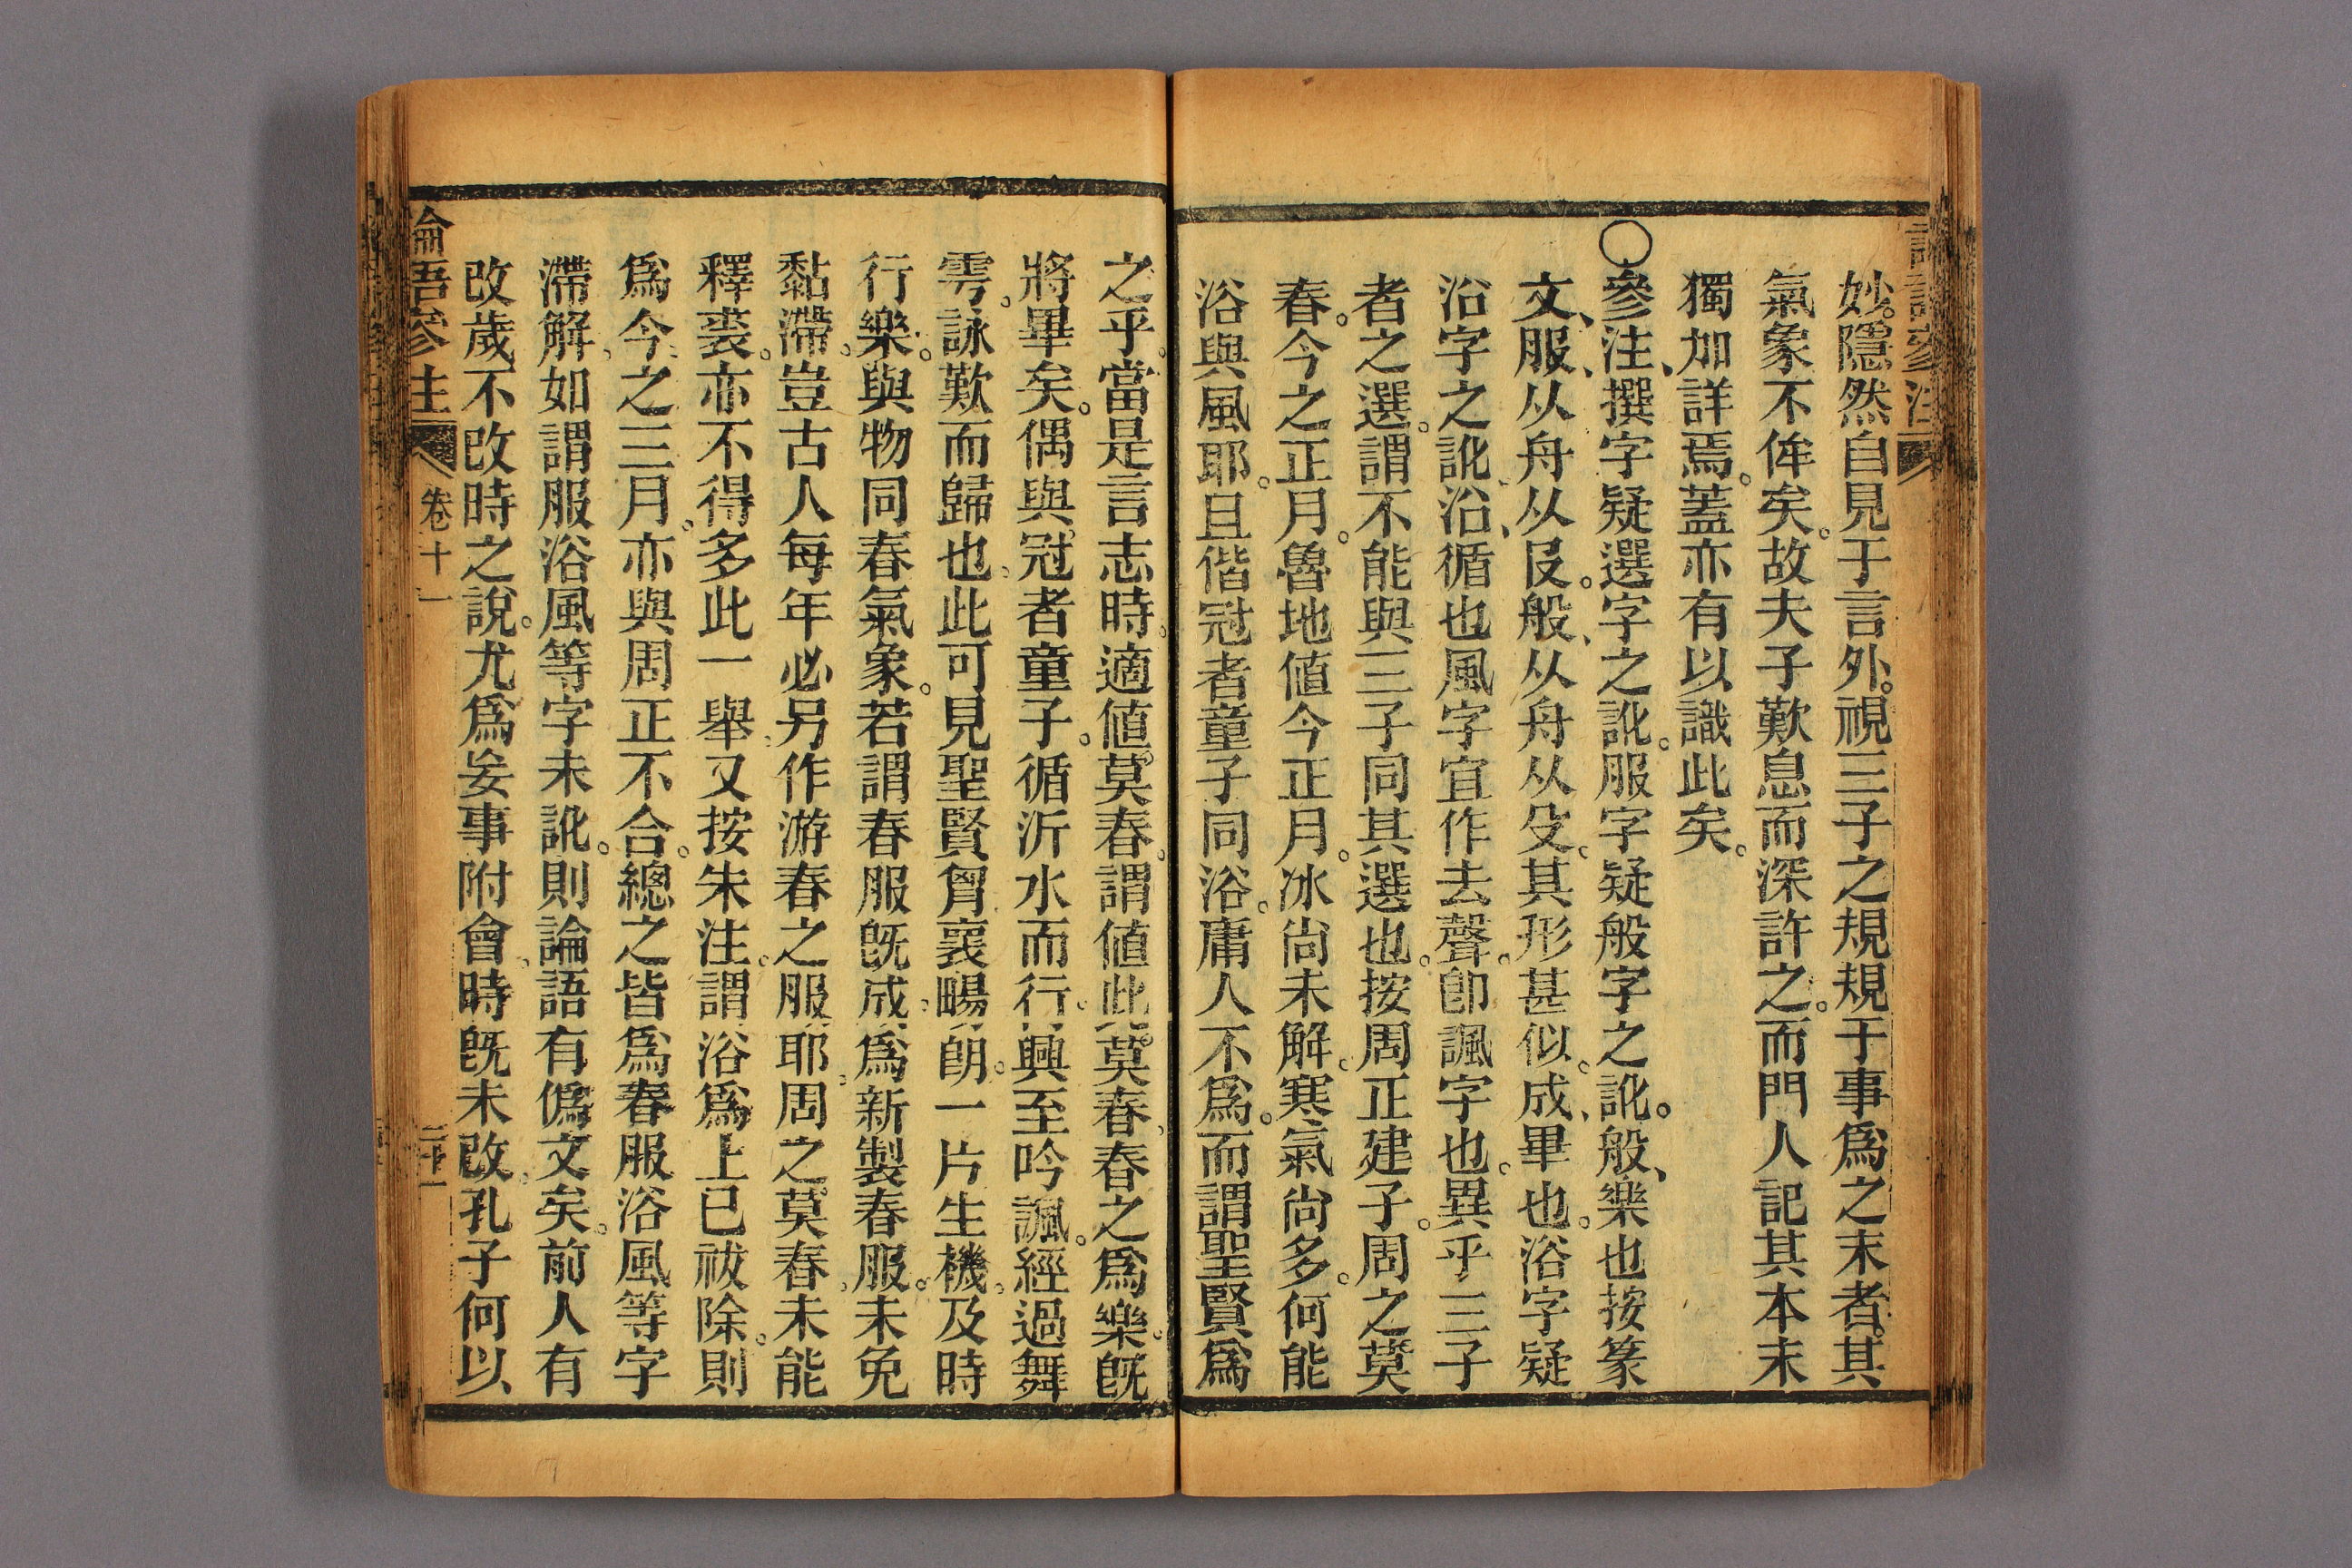 論語參注
妙。隱然自見于言外。視三子之規規于事爲之末者。其
氣象不侔矣。故夫子歎息而深許之。而門人記其本末
獨加詳焉。蓋亦有以識此矣。
○參注、撰字疑選字之訛。服字疑般字之訛。般、樂也按篆
文、服、从舟从𠬝。般、从舟从殳。其形甚似。成、畢也。浴字疑
沿字之訛。沿、循也風字宜作去聲。卽諷字也。異乎三子
者之選。謂不能與三子同其選也。按周正建子。周之莫
春。今之正月。魯地値今正月。冰尙未解。寒氣尙多。何能
浴與風耶。且偕冠者童子同浴。庸人不爲。而謂聖賢爲
之乎。當是言志時。適値莫春。謂値此莫春。春之爲樂。旣
將畢矣。偶與冠者童子。循沂水而行。興至吟諷。經過舞
雩。詠歎而歸也。此可見聖賢胷襄暢朗。一片生機。及時
行樂。與物同春氣象。若謂春服旣成。爲新製春服。未免
黏滯。豈古人每年必另作游春之服耶。周之莫春。未能
釋裘。亦不得多此一舉。又按朱注。謂浴爲上巳祓除。則
爲今之三月。亦與周正不合。總之皆爲春服浴風等字
滯解。如謂服浴風等字未訛。則論語有僞文矣。前人有
改歲不改時之說。尤爲妄事附會。時旣未改。孔子何以
論語參注 卷十一 二十一